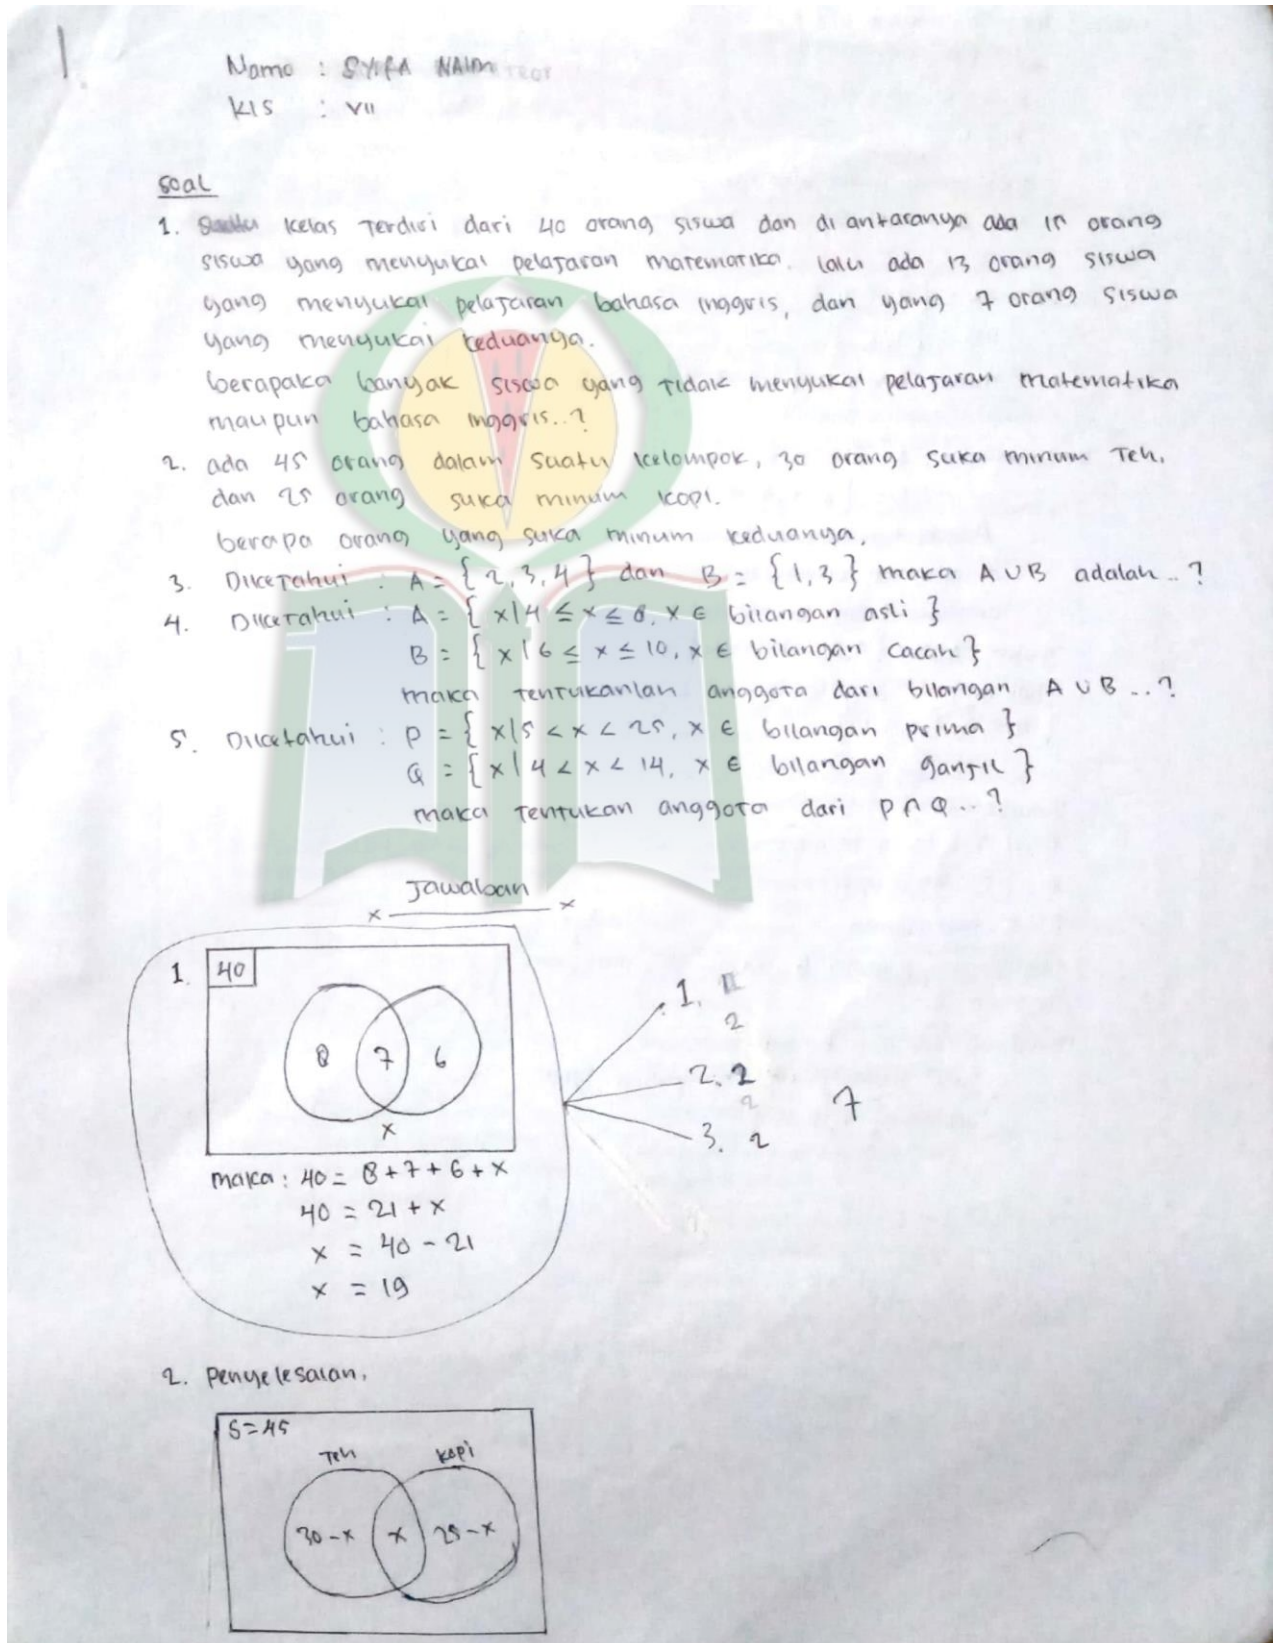 1.
Nama : SYIFA NAIM
Kls : VII
Soal
1. Suatu kelas Terdiri dari 40 orang siswa dan di antaranya ada 15 orang
siswa yang menyukai pelajaran matematika. lalu ada 13 orang siswa
yang menyukai pelajaran bahasa inggris, dan yang 7 orang siswa
yang menyukai keduanya.
berapaka banyak siswa yang Tidak menyukai pelajaran matematika
maupun bahasa inggris..?
2. ada 45 orang dalam suatu kelompok, 30 orang suka minum Teh.
dan 25 orang suka minum kopi.
berapa orang yang suka minum keduanya.
3. Diketahui : A = { 2, 3, 4 } dan B = { 1, 3 } maka A ∪ B adalah..?
4. Diketahui : A = { x | 4 ≤ x ≤ 8, x ∈ bilangan asli }
B = { x | 6 ≤ x ≤ 10, x ∈ bilangan cacah }
maka Tentukanlah anggota dari bilangan A ∪ B ..?
5. Diketahui : P = { x | 5 < x < 25, x ∈ bilangan prima }
Q = { x | 4 < x < 14, x ∈ bilangan ganjil }
maka Tentukan anggota dari P ∩ Q ..?
Jawaban
1. 40
8 7 6
x
maka : 40 = 8 + 7 + 6 + x
40 = 21 + x
x = 40 - 21
x = 19
1.
2
2. 2
2
3. 2
7
2. Penyelesaian.
S = 45
Teh Kopi
30 - x x 25 - x